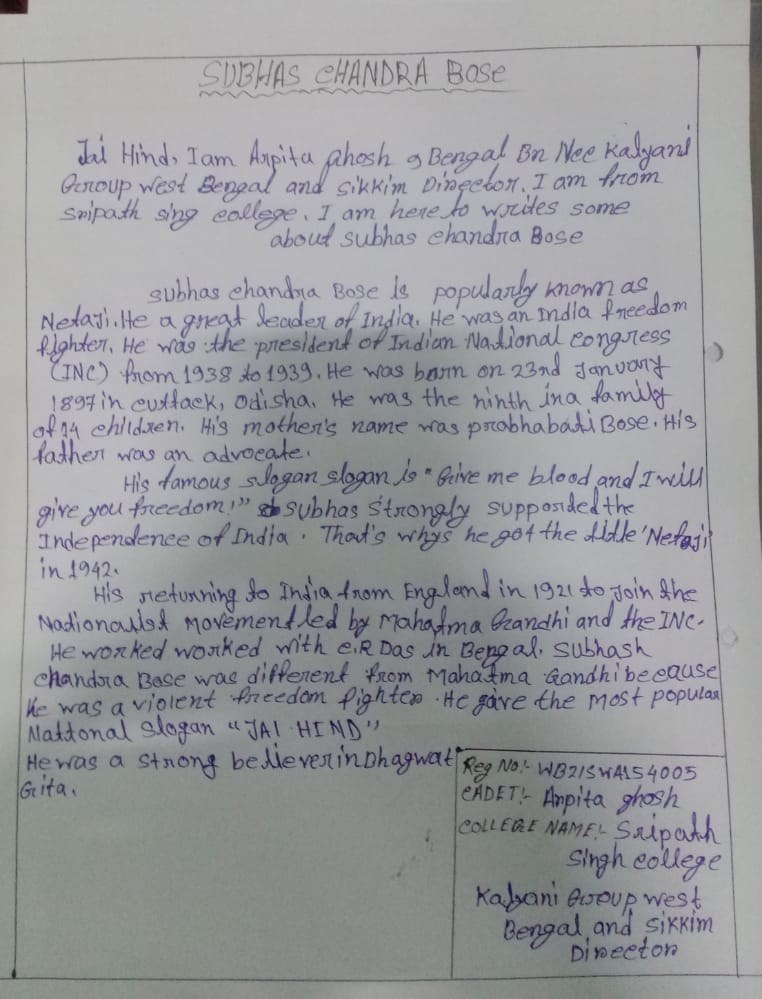 SUBHAS CHANDRA BOSE
Jai Hind, I am Arpita Ghosh 9 Bengal Bn Ncc Kalyani
Group West Bengal and Sikkim Director. I am from
Sripath sing college. I am here to writes some
about subhas chandra Bose
subhas chandra Bose is popularly known as
Netaji. He a great leader of India. He was an India freedom
fighter. He was the president of Indian National congress
(INC) from 1938 to 1939. He was born on 23nd January
1897 in cuttack, Odisha. He was the ninth in a family
of 14 children. His mother's name was prabhabati Bose. His
father was an advocate.
His famous slogan slogan is "Give me blood and I will
give you freedom!" subhas strongly supported the
Independence of India. That's whys he got the title 'Netaji'
in 1942.
His returning to India from England in 1921 to join the
Nationalist movement led by Mahatma Gandhi and the INC.
He worked worked with C.R Das in Bengal. Subhash
chandra Bose was different from Mahatma Gandhi because
He was a violent freedom fighter. He gave the most popular
National slogan "JAI HIND"
He was a strong believer in Bhagwat
Gita.
Reg No:- WB21SWA154005
CADET:- Arpita ghosh
COLLEGE NAME:- Sripath
Singh college
Kalyani Group west
Bengal and Sikkim
Director